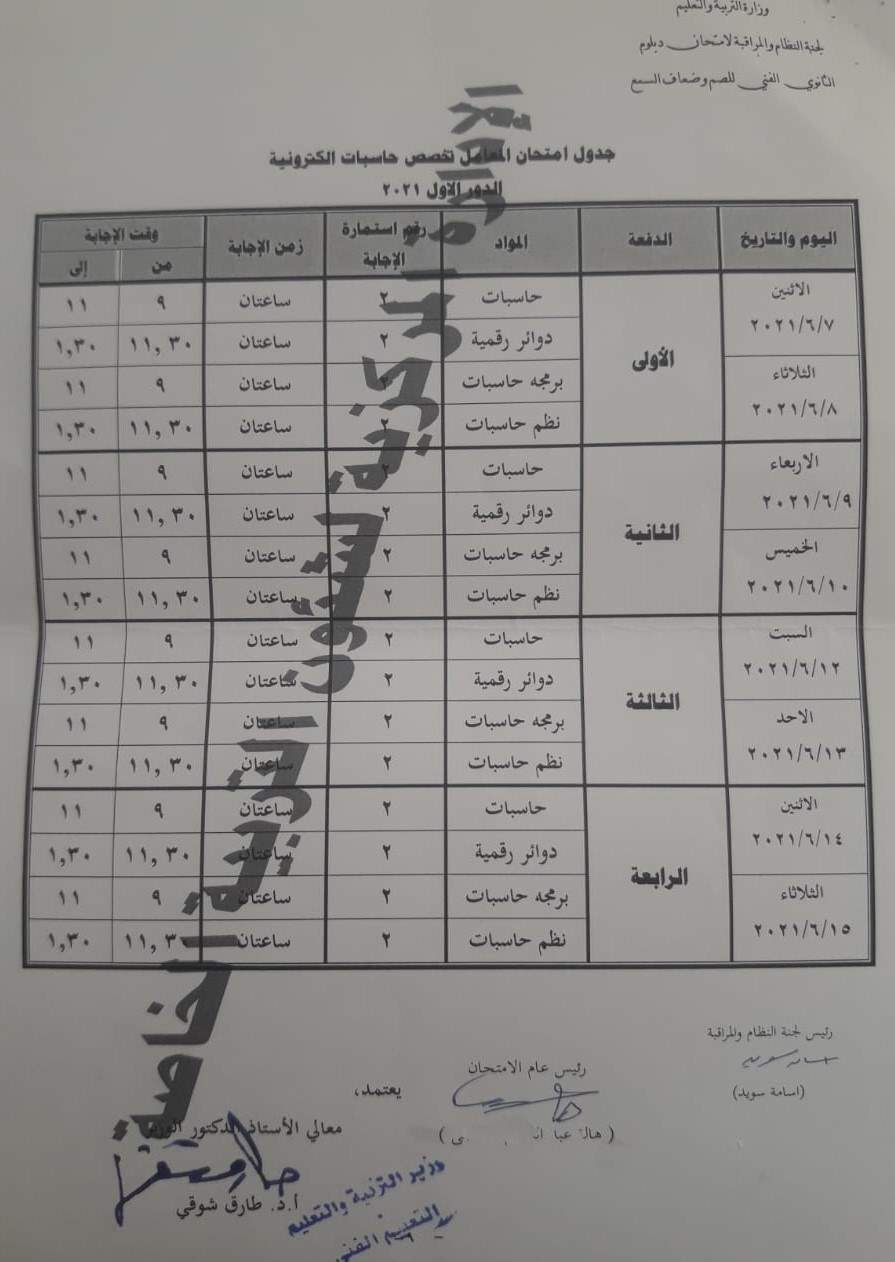 وزارة التربية والتعليم
لجنة النظام والمراقبة لامتحان دبلوم
الثانوي الفني للصم وضعاف السمع
جدول امتحان المعامل تخصص حاسبات الكترونية
الدور الاول ٢٠٢١
اليوم والتاريخ الدفعة المواد رقم استمارة الإجابة زمن الإجابة وقت الإجابة
من إلى
الاثنين ٢٠٢١/٦/٧ الأولى حاسبات ٢ ساعتان ٩ ١١
دوائر رقمية ٢ ساعتان ١١,٣٠ ١,٣٠
الثلاثاء ٢٠٢١/٦/٨ برمجه حاسبات ٢ ساعتان ٩ ١١
نظم حاسبات ٢ ساعتان ١١,٣٠ ١,٣٠
الاربعاء ٢٠٢١/٦/٩ الثانية حاسبات ٢ ساعتان ٩ ١١
دوائر رقمية ٢ ساعتان ١١,٣٠ ١,٣٠
الخميس ٢٠٢١/٦/١٠ برمجه حاسبات ٢ ساعتان ٩ ١١
نظم حاسبات ٢ ساعتان ١١,٣٠ ١,٣٠
السبت ٢٠٢١/٦/١٢ الثالثة حاسبات ٢ ساعتان ٩ ١١
دوائر رقمية ٢ ساعتان ١١,٣٠ ١,٣٠
الاحد ٢٠٢١/٦/١٣ برمجه حاسبات ٢ ساعتان ٩ ١١
نظم حاسبات ٢ ساعتان ١١,٣٠ ١,٣٠
الاثنين ٢٠٢١/٦/١٤ الرابعة حاسبات ٢ ساعتان ٩ ١١
دوائر رقمية ٢ ساعتان ١١,٣٠ ١,٣٠
الثلاثاء ٢٠٢١/٦/١٥ برمجه حاسبات ٢ ساعتان ٩ ١١
نظم حاسبات ٢ ساعتان ١١,٣٠ ١,٣٠
الإدارة المركزية لشئون التربية الخاصة
رئيس لجنة النظام والمراقبة
اسامه سويد
(اسامة سويد)
رئيس عام الامتحان
(هالة
يعتمد،
معالي الأستاذ الدكتور الوزير
أ.د. طارق شوقي
وزير التربية والتعليم
والتعليم الفني